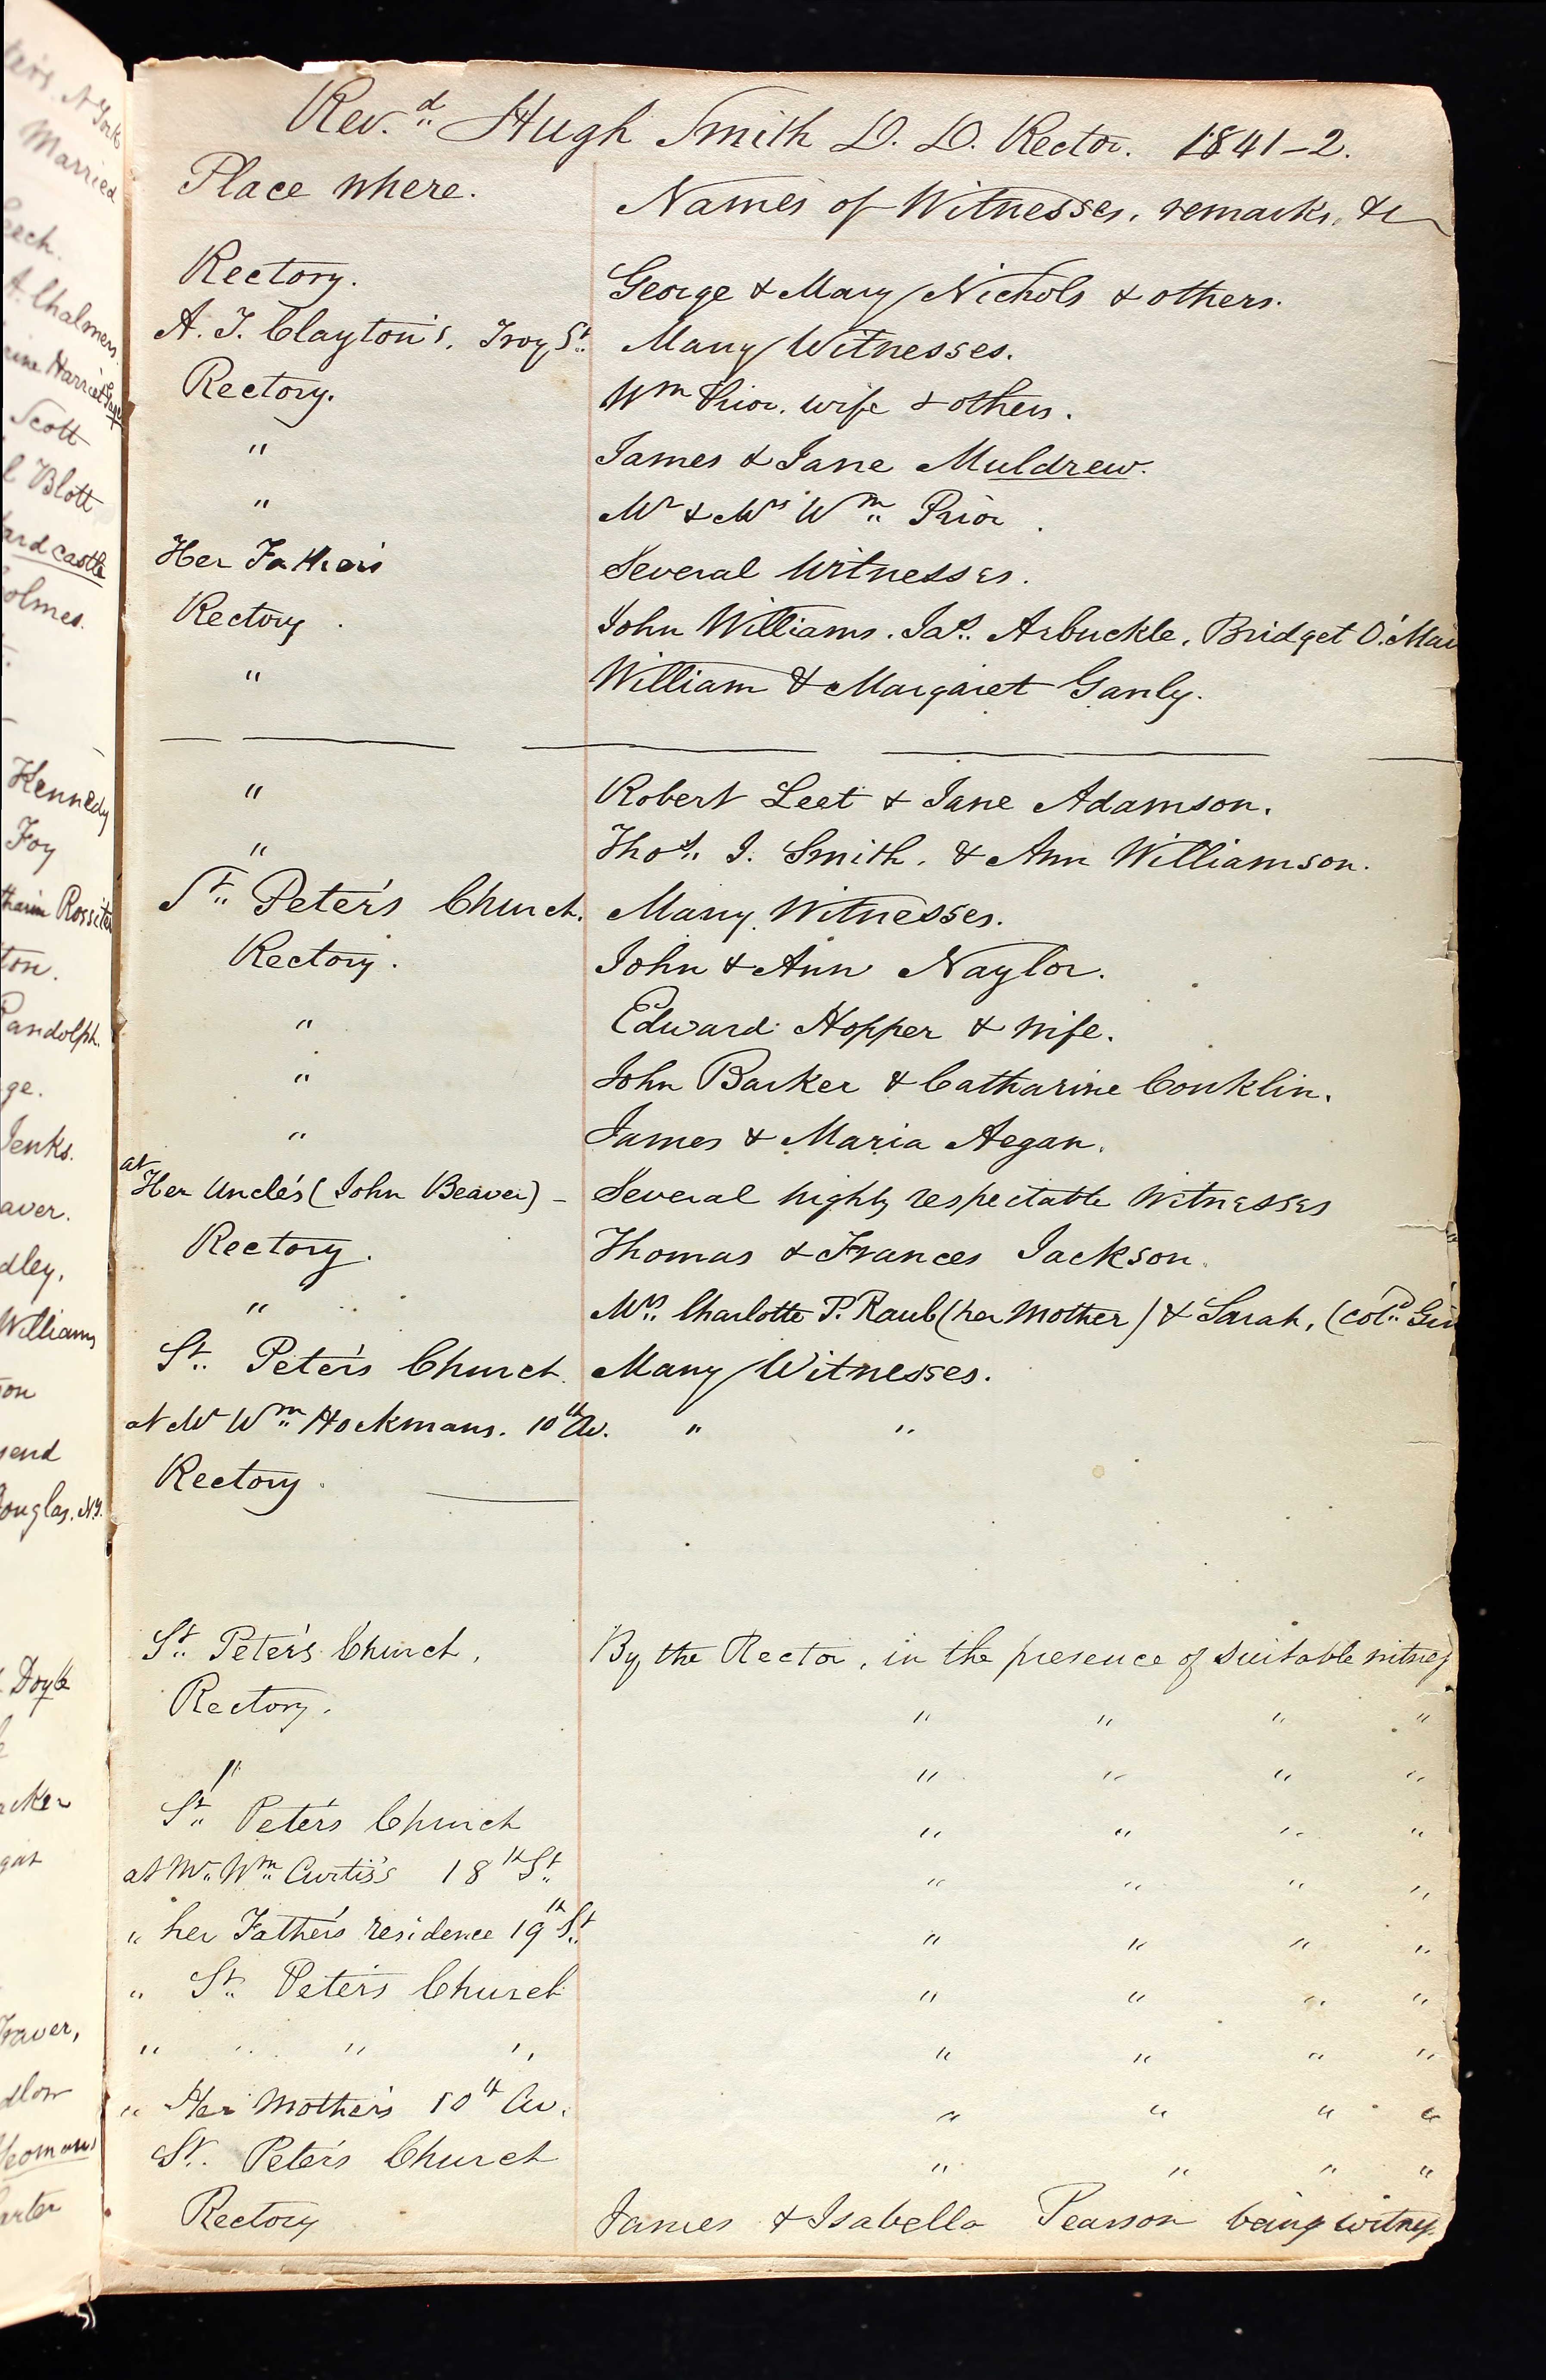 ters. N York
Married
eech.
A. Chalmers.
Scott
l Blott
ardcastle
olmes.
Kennedy
Foy
Rossiter
ton.
Randolph.
ge.
Jenks.
aver.
dley,
Williams
son
send
Douglas. N.Y.
Doyle
acker
gar
Traver,
dlow
Yeomans
arter
Rev.d Hugh Smith D. D. Rector. 1841-2.
Place where. Names of Witnesses, remarks, &c
Rectory. George & Mary Nichols & others.
A. J. Clayton's, Troy St. Many Witnesses.
Rectory. Wm Prior, wife & others.
" James & Jane Muldrew.
" Mr & Mrs Wm Prior.
Her Father's Several Witnesses.
Rectory. John Williams. Jas. Arbuckle, Bridget O'Mar
" William & Margaret Ganly.
" Robert Leet & Jane Adamson.
" Thos. J. Smith, & Ann Williamson.
St. Peter's Church. Many Witnesses.
Rectory. John & Ann Naylor.
" Edward Hopper & wife.
" John Barker & Catharine Conklin.
" James & Maria Aegan.
at Her Uncle's (John Beaver) - Several highly respectable Witnesses
Rectory. Thomas & Frances Jackson.
" Mrs. Charlotte P. Raub (her Mother) & Sarah, (cold. Gir
St. Peter's Church. Many Witnesses.
at Mr Wm Hockmans. 10th Av. " "
Rectory.
St. Peter's Church, By the Rector, in the presence of suitable witnes
Rectory. " " " "
" " " " "
St. Peter's Church " " " "
at Mr. Wm. Curtis's 18th St. " " " "
" her Father's residence 19th St. " " " "
" St. Peter's Church " " " "
" " " " " " " "
" Her Mother's 10th Av. " " " "
St. Peter's Church " " " "
Rectory James & Isabella Pearson being witnes